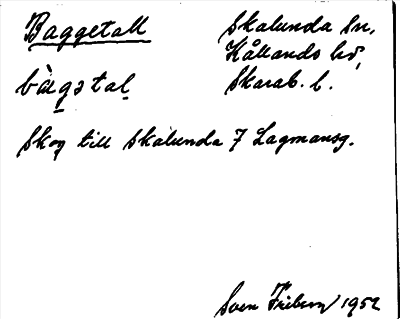 Baggetall Skalunda Sn,
Kållands hd,
bàgətal Skarab. l.
Skog till Skalunda 7 Lagmansg.
Sven Friberg 1952